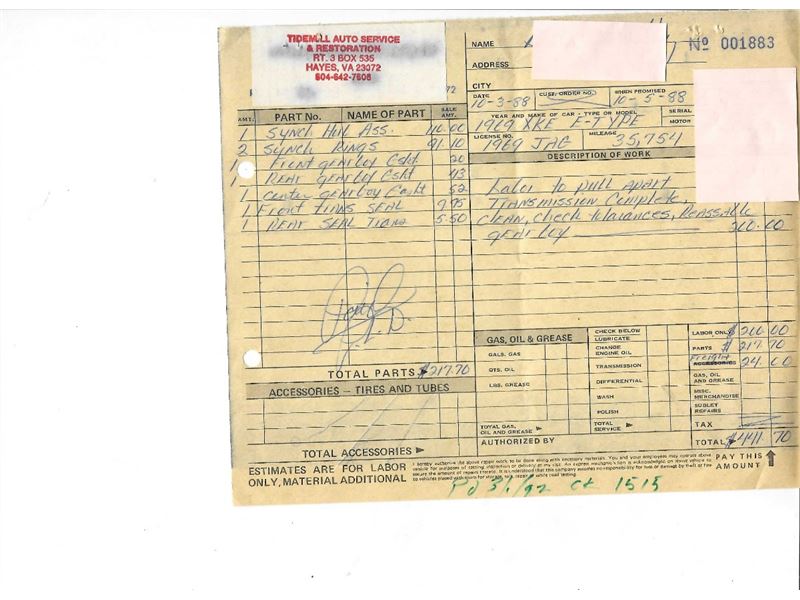 TIDEMILL AUTO SERVICE
& RESTORATION
RT. 3 BOX 535
HAYES, VA 23072
804-642-7606
NAME
Nº 001883
ADDRESS
CITY
DATE CUST. ORDER NO. WHEN PROMISED
10-3-88 10-5-88
YEAR AND MAKE OF CAR - TYPE OR MODEL SERIAL
1969 XKE E-TYPE MOTOR
LICENSE NO. MILEAGE
1969 JAG 35,754
DESCRIPTION OF WORK
Labor to pull apart
Transmission Complete,
Clean, Check tolarances, Reassable
gearboy 200.00
AMT. PART No. NAME OF PART SALE AMT.
1 Synch Hub Ass. 110.00
2 Synch Rings 91.10
1 Front gearboy Gskt 20
1 Rear gearboy Gskt 43
1 Center gearboy Gasht 52
1 Front trans SEAL 9.95
1 REAR SEAL Trans 5.50
TOTAL PARTS $217.70
ACCESSORIES - TIRES AND TUBES
TOTAL ACCESSORIES
ESTIMATES ARE FOR LABOR
ONLY, MATERIAL ADDITIONAL
GAS, OIL & GREASE
GALS. GAS
QTS. OIL
LBS. GREASE
TOTAL GAS,
OIL AND GREASE
CHECK BELOW
LUBRICATE
CHANGE
ENGINE OIL
TRANSMISSION
DIFFERENTIAL
WASH
POLISH
TOTAL
SERVICE
LABOR ONLY $200.00
PARTS $217.70
Freight
ACCESSORIES 24.00
GAS, OIL
AND GREASE
MISC.
MERCHANDISE
SUBLET
REPAIRS
TAX
TOTAL $441.70
AUTHORIZED BY
PAY THIS
AMOUNT
I hereby authorize the above repair work to be done along with necessary materials. You and your employees may operate above
vehicle for purposes of testing, inspection or delivery at my risk. An express mechanic's lien is acknowledged on above vehicle to
secure the amount of repairs thereto. It is understood that this company assumes no responsibility for loss or damage by theft or fire
to vehicles placed with them for storage, sale, repair or while road testing.
Pd CK 1515